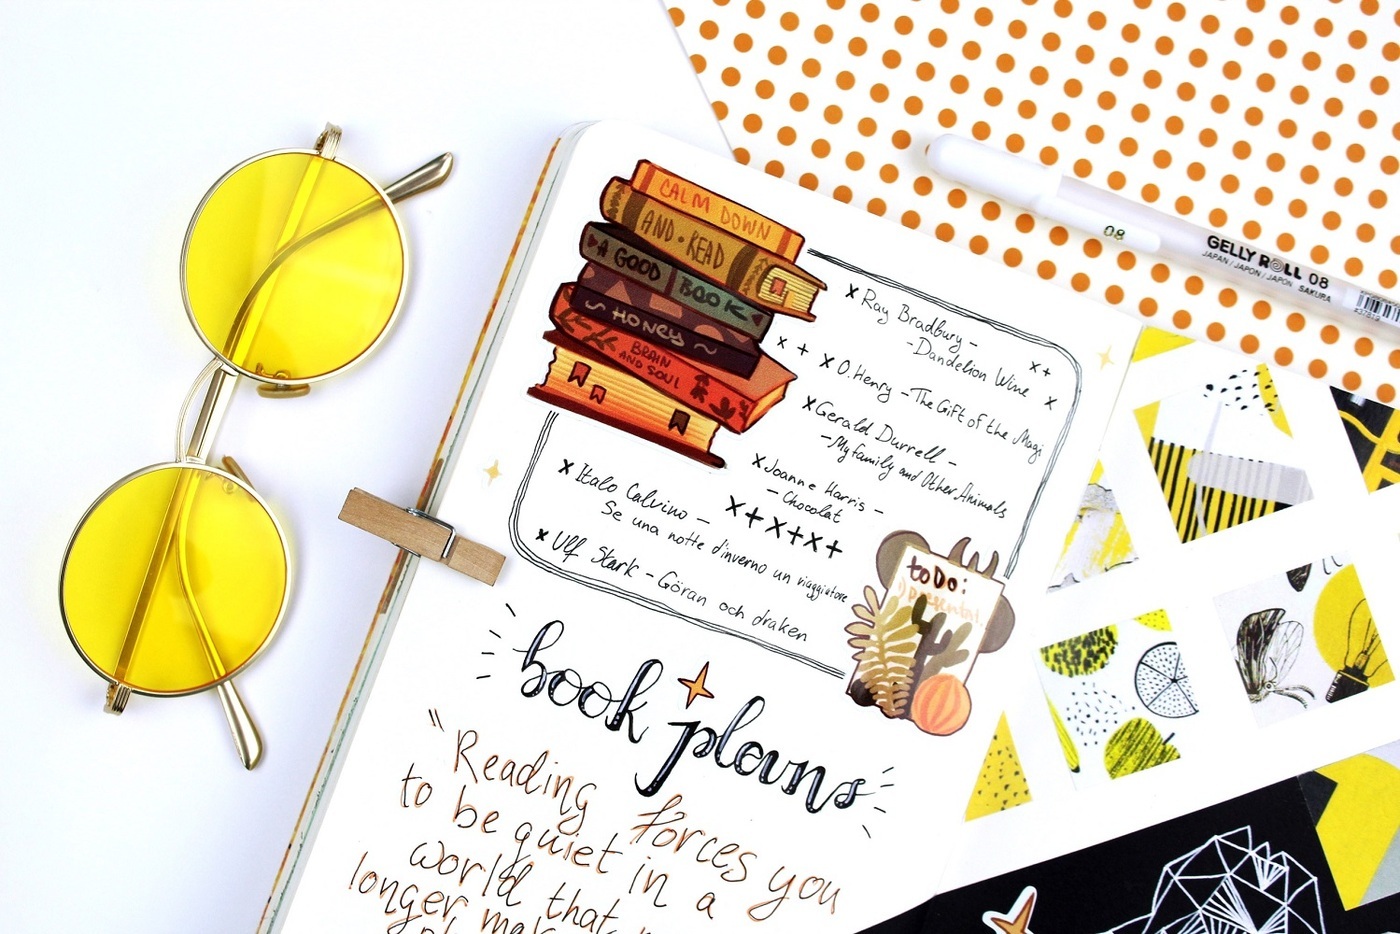 CALM DOWN
AND • READ
A GOOD BOOK
~ HONEY ~
BRAIN
AND SOUL
x Ray Bradbury -
- Dandelion Wine
x O.Henry - The Gift of the Magi
x Gerald Durrell -
- My family and Other Animals
x Joanne Harris -
- Chocolat
x Italo Calvino -
Se una notte d'inverno un viaggiatore
x Ulf Stark - Göran och draken
toDo:
1) presentat.
book plans
"Reading forces you
to be quiet in a
world that
longer
08
GELLY ROLL 08
JAPAN / JAPON / JAPÓN SAKURA